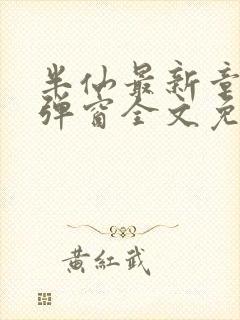 半仙最新章
弹窗全文免
黄紅武